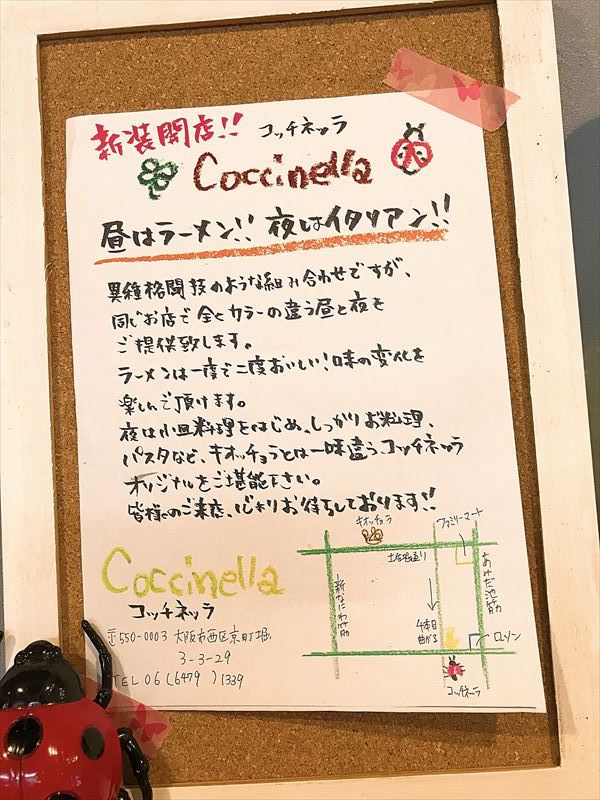 新装開店!! コッチネッラ
Coccinella
昼はラーメン!! 夜はイタリアン!!
異種格闘技のような組み合わせですが、
同じお店で全くカラーの違う昼と夜を
ご提供致します。
ラーメンは一度で二度おいしい!味の変化を
楽しんで頂けます。
夜は小皿料理をはじめ、しっかりお料理、
パスタなど、キオッチョラとは一味違うコッチネッラ
オリジナルをご堪能下さい。
皆様のご来店、心よりお待ちしております!!
Coccinella
コッチネッラ
〒550-0003 大阪市西区京町堀
3-3-29
TEL 06(6479)1339
キオッチョラ
ファミリーマート
土佐堀通り
新なにわ筋
あみだ池筋
4本目
曲がる
ローソン
コッチネッラ